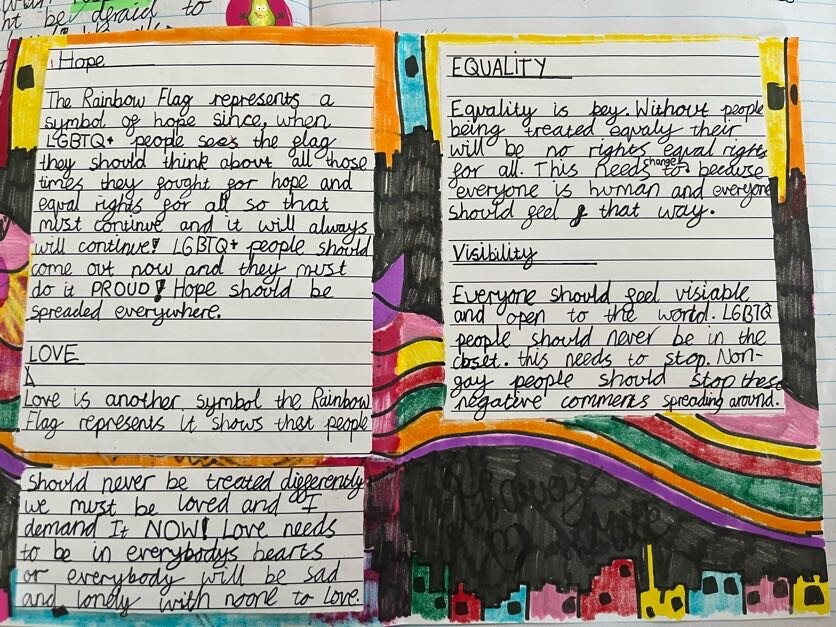 nt be afraid to
Hope
The Rainbow Flag represents a
symbol of hope since, when
LGBTQ+ people sees the flag
they should think about all those
times they fought for hope and
equal rights for all so that
must continue and it will always
will continue! LGBTQ+ people should
come out now and they must
do it PROUD! Hope should be
spreaded everywhere.
LOVE
Love is another symbol the Rainbow
Flag represents it shows that people
should never be treated differently
we must be loved and I
demand It NOW! Love needs
to be in everybodys hearts
or everybody will be sad
and lonely with noone to love.
EQUALITY
Equality is key. Without people
being treated equaly their
will be no rights equal rights
for all. This needs to change because
everyone is human and everyone
should feel that way.
Visibility
Everyone should feel visiable
and open to the world. LGBTQ
people should never be in the
closet. this needs to stop. Non-
gay people should stop these
negative comments spreading around.